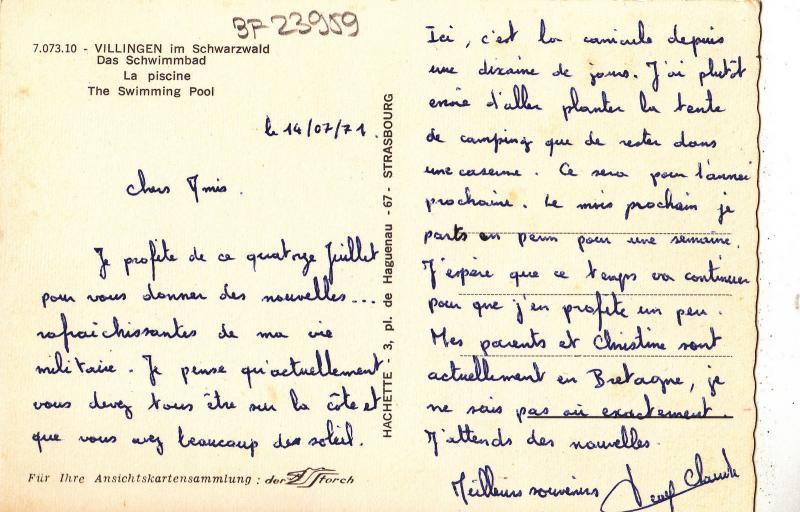 BF 23959
7.073.10 - VILLINGEN im Schwarzwald
Das Schwimmbad
La piscine
The Swimming Pool
le 14/07/71.
Chers Amis.
Je profite de ce quatorze Juillet
pour vous donner des nouvelles...
rafraîchissantes de ma vie
militaire. Je pense qu'actuellement
vous devez tous être sur la côte et
que vous avez beaucoup de soleil.
Für Ihre Ansichtskartensammlung : der Storch
HACHETTE - 3, pl. de Haguenau - 67 - STRASBOURG
Ici, c'est la canicule depuis
une dizaine de jours. J'ai plutôt
envie d'aller planter la tente
de camping que de rester dans
une caserne. Ce sera pour l'année
prochaine. Le mois prochain je
parts en perm pour une semaine.
J'espère que ce temps va continuer
pour que j'en profite un peu.
Mes parents et Christine sont
actuellement en Bretagne, je
ne sais pas où exactement.
J'attends des nouvelles.
Meilleurs souvenirs Claude